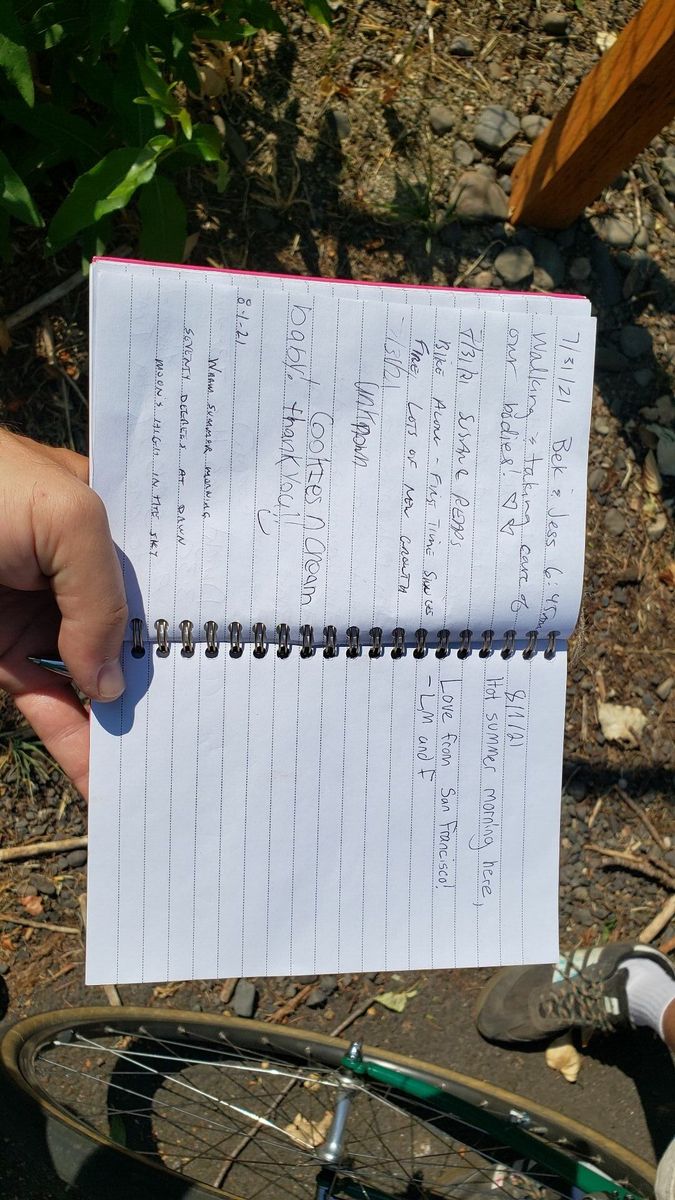 7/31/21 Bek & Jess 6:45am
Walking & taking care of
our bodies! ♡ ♡
7/31/21
BIKE ALONG - FIRST TIME SINCE
FIRE, LOTS OF NEW GROWTH
7/31/21
Unknown
Cookies n cream
baby! thank you!!
8-1-21
WARM SUMMER MORNING
SEVENTY DEGREES AT DAWN
MOON'S HIGH IN THE SKY
8/1/21
Hot summer morning here,
Love from San Francisco!
- LM and F